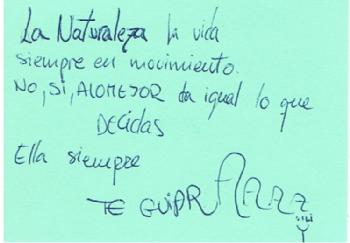 La Naturaleza la vida
siempre en movimiento.
NO, SI, ALOMEJOR da igual lo que
DECIDAS
Ella siempre
TE GUIARAAAA